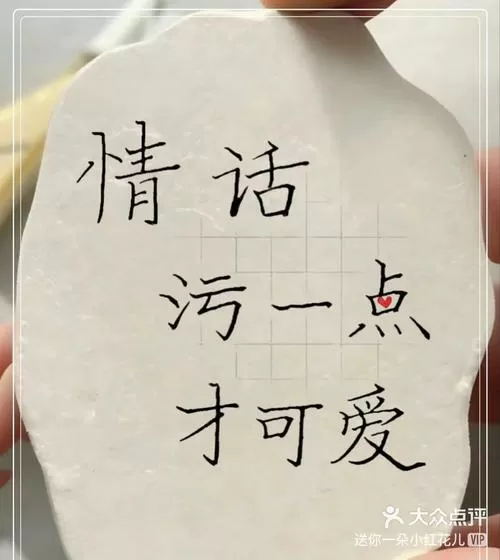 情话
污一点
才可爱
大众点评
送你一朵小红花儿 VIP